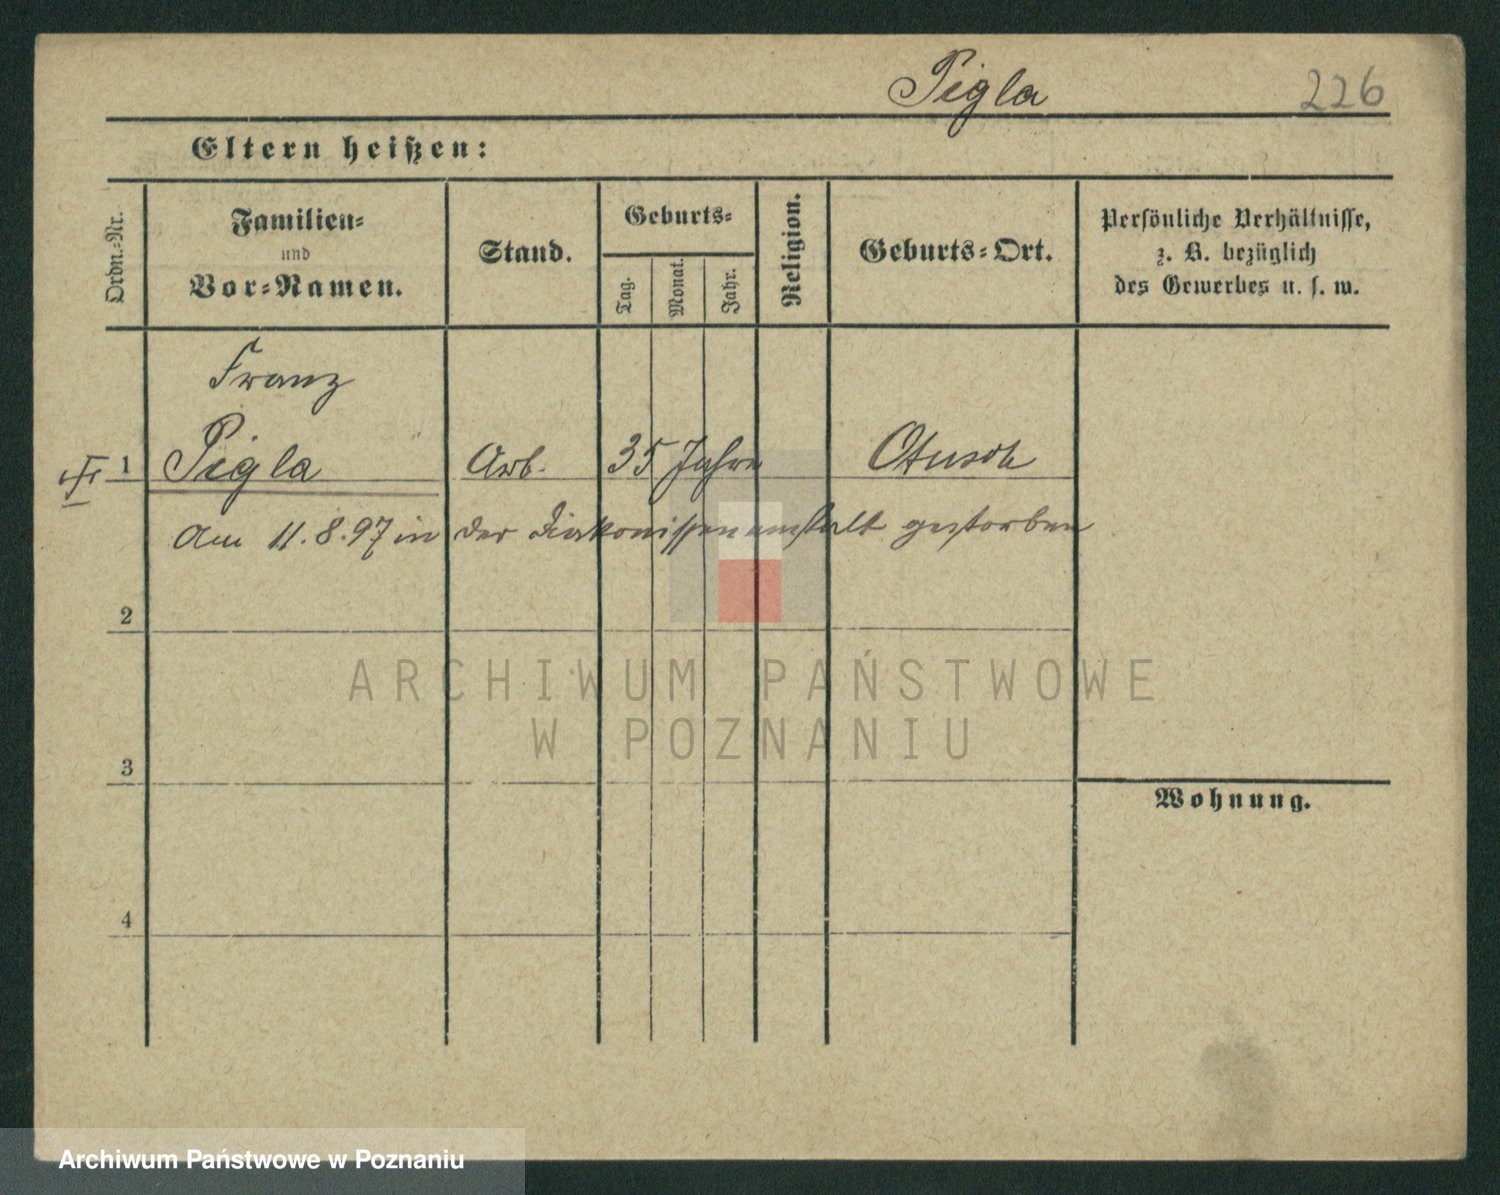 Pigla 226
Eltern heißen:
Ordn.-Nr.
Familien-
und
Vor-Namen.
Stand.
Geburts-
Tag.
Monat.
Jahr.
Religion.
Geburts-Ort.
Persönliche Verhältnisse,
z. B. bezüglich
des Gewerbes u. s. w.
Franz
1 Pigla Arb. 35 Jahre Otusch
Am 11.8.97 in der Diakonissenanstalt gestorben
2
3
Wohnung.
4
ARCHIWUM PAŃSTWOWE
W POZNANIU
Archiwum Państwowe w Poznaniu